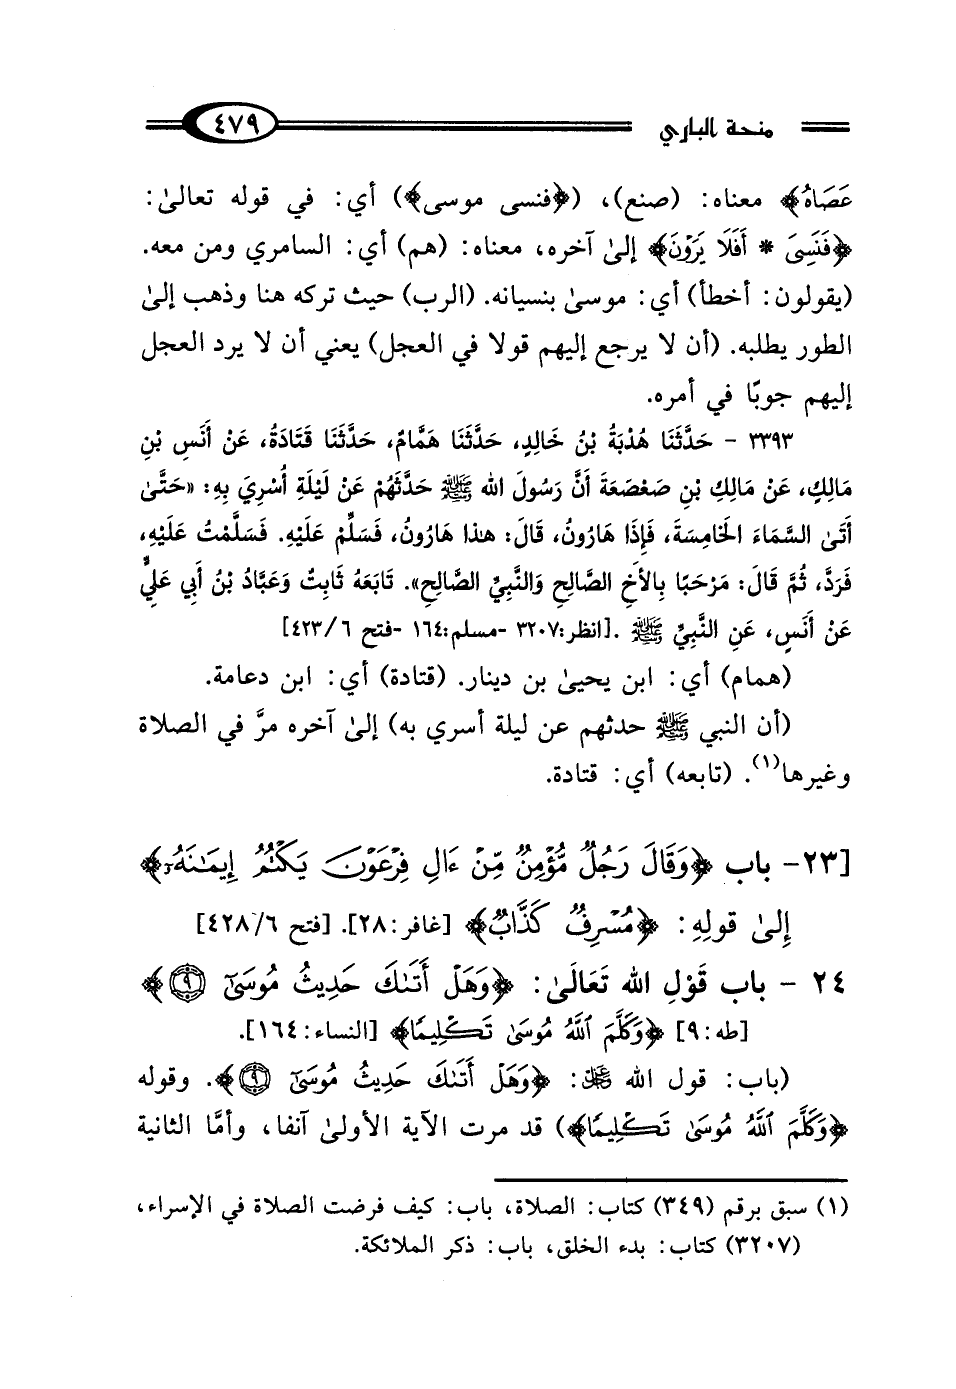 منحة الباري ٤٧٩
عَصَاهُ﴾ معناه: (صنع)، (﴿فنسى موسى﴾) أي: في قوله تعالىٰ:
﴿فَنَسِيَ * أَفَلَا يَرَوْنَ﴾ إلىٰ آخره، معناه: (هم) أي: السامري ومن معه.
(يقولون: أخطأ) أي: موسىٰ بنسيانه. (الرب) حيث تركه هنا وذهب إلىٰ
الطور يطلبه. (أن لا يرجع إليهم قولا في العجل) يعني أن لا يرد العجل
إليهم جوبًا في أمره.
٣٣٩٣ - حَدَّثَنَا هُدْبَةُ بْنُ خَالِدٍ، حَدَّثَنَا هَمَّامٌ، حَدَّثَنَا قَتَادَةُ، عَنْ أَنَسِ بْنِ
مَالِكٍ، عَنْ مَالِكِ بْنِ صَعْصَعَةَ أَنَّ رَسُولَ الله ﷺ حَدَّثَهُمْ عَنْ لَيْلَةِ أُسْرِيَ بِهِ: «حَتَّىٰ
أَتَىٰ السَّمَاءَ الْخَامِسَةَ، فَإِذَا هَارُونُ، قَالَ: هٰذا هَارُونُ، فَسَلِّمْ عَلَيْهِ. فَسَلَّمْتُ عَلَيْهِ،
فَرَدَّ، ثُمَّ قَالَ: مَرْحَبًا بِالأَخِ الصَّالِحِ وَالنَّبِيِّ الصَّالِحِ». تَابَعَهُ ثَابِتٌ وَعَبَّادُ بْنُ أَبِي عَلِيٍّ
عَنْ أَنَسٍ، عَنِ النَّبِيِّ ﷺ .[انظر:٣٢٠٧ -مسلم:١٦٤ -فتح ٦/ ٤٢٣]
(همام) أي: ابن يحيىٰ بن دينار. (قتادة) أي: ابن دعامة.
(أن النبي ﷺ حدثهم عن ليلة أسري به) إلىٰ آخره مرَّ في الصلاة
وغيرها(١). (تابعه) أي: قتادة.
[٢٣- باب ﴿وَقَالَ رَجُلٌ مُّؤْمِنٌ مِّنْ ءَالِ فِرْعَوْنَ يَكْتُمُ إِيمَٰنَهُۥٓ﴾
إِلىٰ قولِهِ: ﴿مُسْرِفٌ كَذَّابٌ﴾ [غافر:٢٨]. [فتح ٦/ ٤٢٨]
٢٤ - باب قَوْلِ الله تَعَالَىٰ: ﴿وَهَلْ أَتَىٰكَ حَدِيثُ مُوسَىٰٓ ٩﴾
[طه:٩] ﴿وَكَلَّمَ ٱللَّهُ مُوسَىٰ تَكْلِيمًا﴾ [النساء:١٦٤].
(باب: قول الله ﷻ: ﴿وَهَلْ أَتَىٰكَ حَدِيثُ مُوسَىٰٓ ٩﴾. وقوله
﴿وَكَلَّمَ ٱللَّهُ مُوسَىٰ تَكْلِيمًا﴾) قد مرت الآية الأولىٰ آنفا، وأمَّا الثانية
(١) سبق برقم (٣٤٩) كتاب: الصلاة، باب: كيف فرضت الصلاة في الإسراء،
(٣٢٠٧) كتاب: بدء الخلق، باب: ذكر الملائكة.